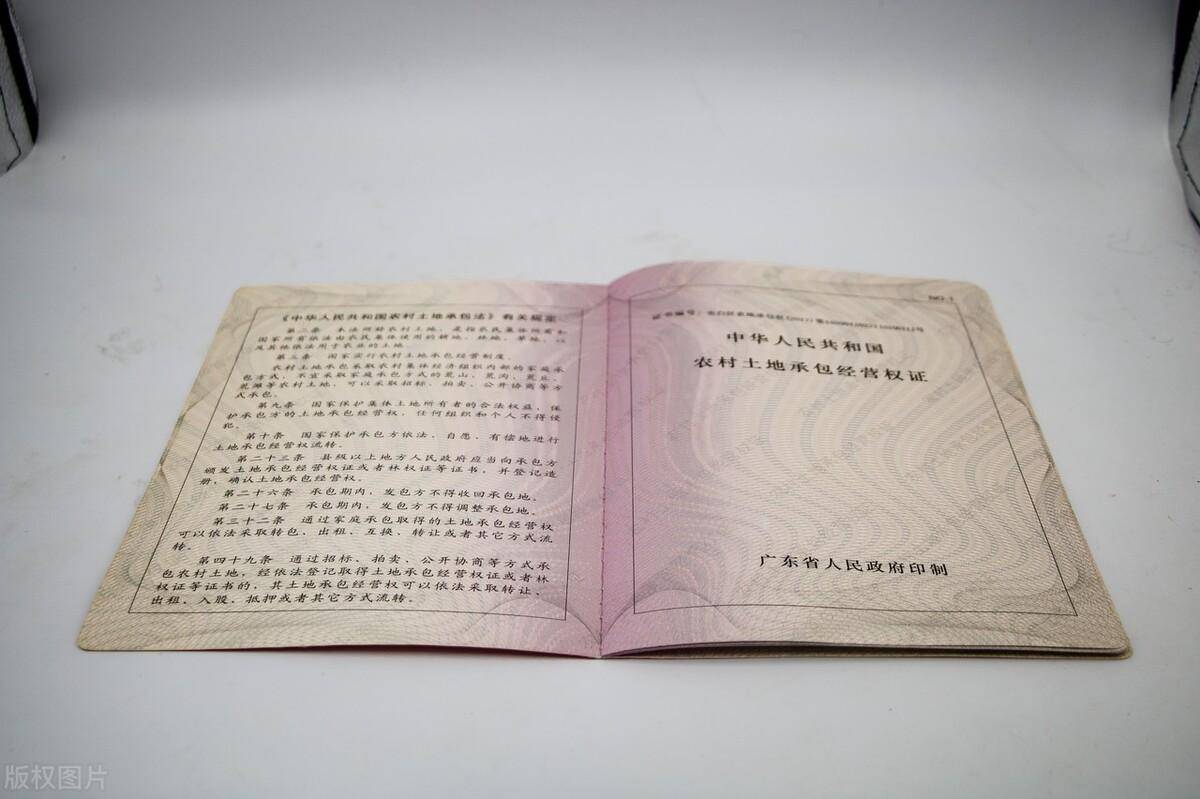 《中华人民共和国农村土地承包法》有关规定
第二条 本法所称农村土地，是指农民集体所有和
国家所有依法由农民集体使用的耕地、林地、草地，以
及其他依法用于农业的土地。
第三条 国家实行农村土地承包经营制度。
农村土地承包采取农村集体经济组织内部的家庭承
包方式，不宜采取家庭承包方式的荒山、荒沟、荒丘、
荒滩等农村土地，可以采取招标、拍卖、公开协商等方
式承包。
第九条 国家保护集体土地所有者的合法权益，保
护承包方的土地承包经营权，任何组织和个人不得侵
犯。
第十条 国家保护承包方依法、自愿、有偿地进行
土地承包经营权流转。
第二十三条 县级以上地方人民政府应当向承包方
颁发土地承包经营权证或者林权证等证书，并登记造
册，确认土地承包经营权。
第二十六条 承包期内，发包方不得收回承包地。
第二十七条 承包期内，发包方不得调整承包地。
第三十二条 通过家庭承包取得的土地承包经营权
可以依法采取转包、出租、互换、转让或者其它方式流
转。
第四十九条 通过招标、拍卖、公开协商等方式承
包农村土地，经依法登记取得土地承包经营权证或者林
权证等证书的，其土地承包经营权可以依法采取转让、
出租、入股、抵押或者其它方式流转。
证书编号：
中华人民共和国
农村土地承包经营权证
广东省人民政府印制
版权图片